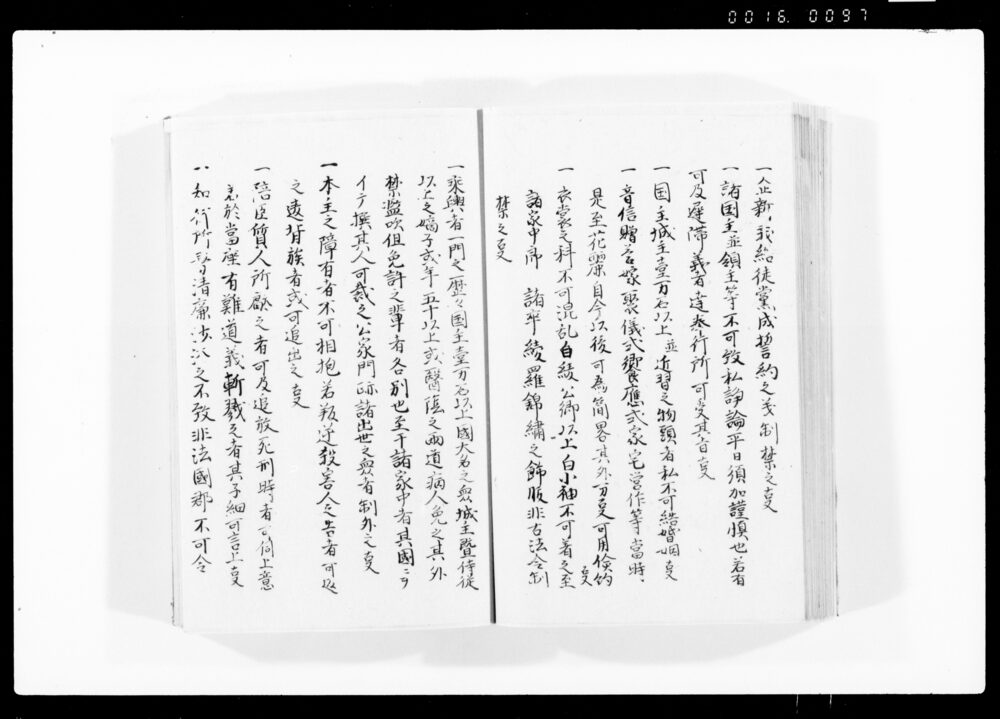 0016. 0097
一企新義結徒党成誓約之義制禁之事
一諸国主並領主等不可致私諍論平日須加謹慎也若有
可及遅滞義者達奉行所可受其旨事
一国主城主壹万石以上並近習之物頭者私不可結婚姻事
一音信贈答嫁娶儀式饗應或家宅営作等當時
是至花麗自今以後可為簡畧其外万事可用倹約
事
一衣裳之科不可混乱白綾公卿以上白小袖
不可着之至
諸家中郎 諸卒綾羅錦繍之飾服非古法令制
禁之事
一乗輿者一門之歴々国主壹万石以上國大名之
城主暨侍従
以上之嫡子或年五十以上或醫陰之両道病人免之其外
禁濫吹但免許之輩者各別也至于諸家中者其國
撰其人可載之公家門跡諸出世之
者制外之事
一本主之障有者不可相抱若叛逆殺害人之告者可返
之違背族者或可追出之事
一陪臣質人所献之者可及追放死刑時者可伺上意
若於當座有難道義斬戮之者其子細可言上事
一知行所
清廉
之不致非法國郡不可令